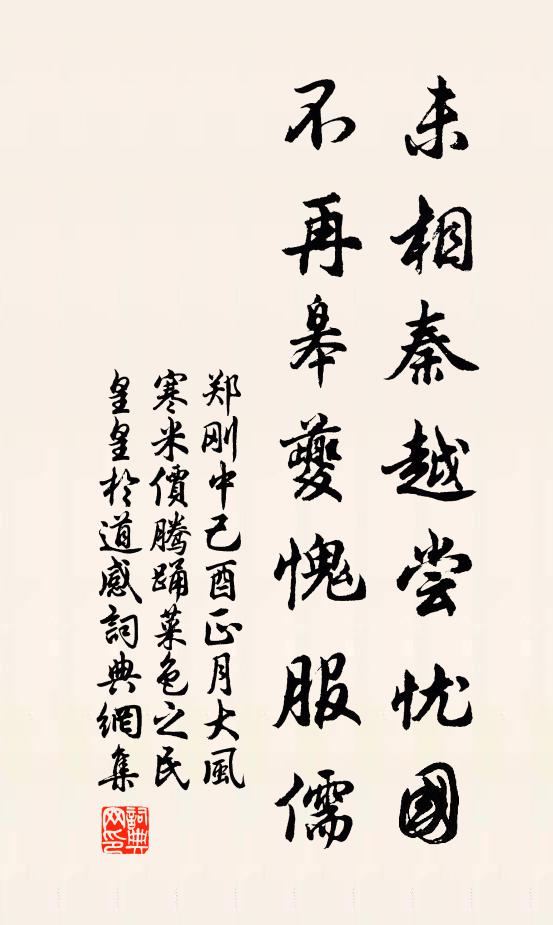 未相秦越尝忧國
不再皋夔愧服儒
郑刚中己酉正月大風
寒米價腾踊菜色之民
皇皇於道感詞典網集
詞典网印